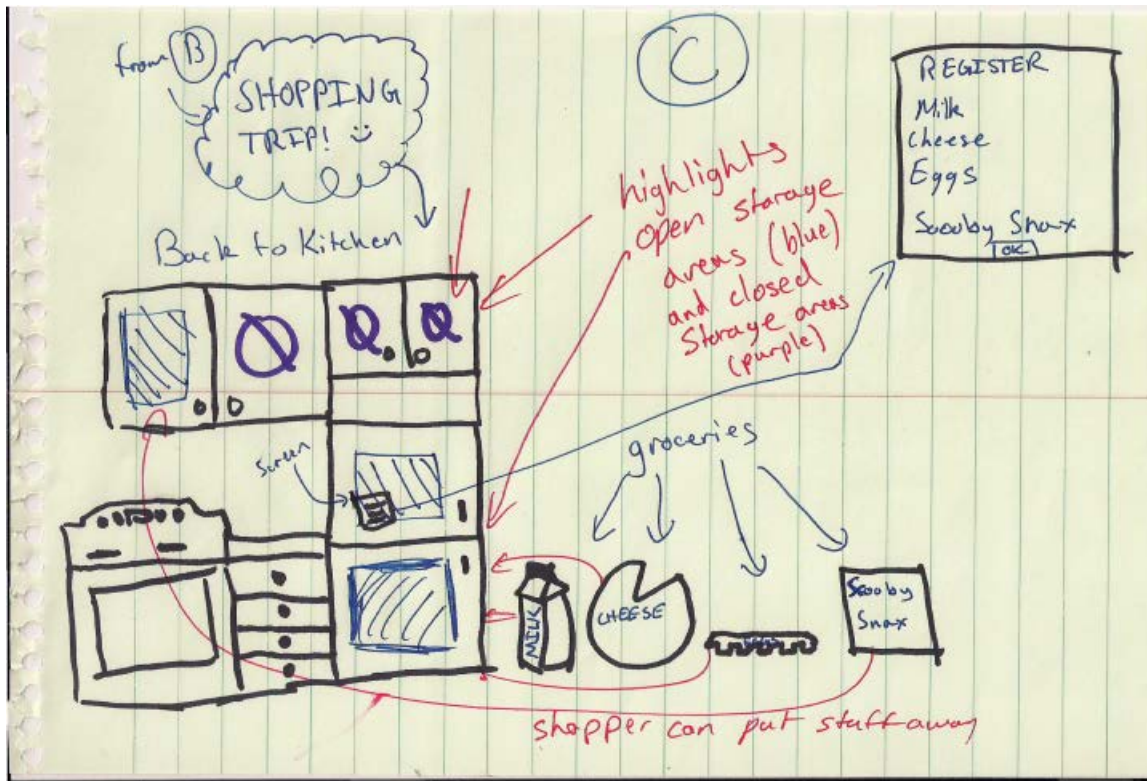 from B
SHOPPING
TRIP!
C
REGISTER
Milk
Cheese
Eggs
Scooby Snax
OK
highlights
open storage
areas (blue)
and closed
Storage areas
(purple)
Back to Kitchen
Screen
groceries
MILK
CHEESE
Scooby
Snax
shopper can put stuff away